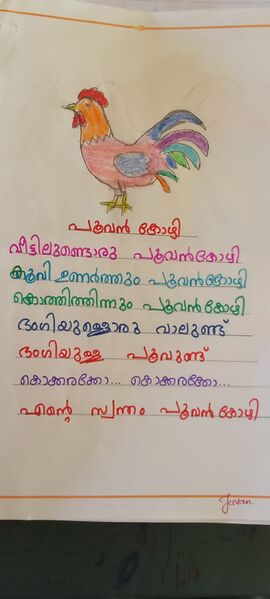 പൂവൻ കോഴി
വീട്ടിലുണ്ടൊരു പൂവൻകോഴി
കൂവി ഉണർത്തും പൂവൻകോഴി
കൊത്തിത്തിന്നും പൂവൻകോഴി
ഭംഗിയുള്ളൊരു വാലുണ്ട്
ഭംഗിയുള്ള പൂവുണ്ട്
കൊക്കരക്കോ... കൊക്കരക്കോ...
എന്റെ സ്വന്തം പൂവൻകോഴി
Juvan